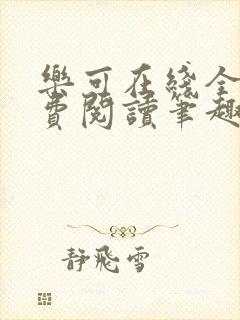 樂可在綫全
費閱讀筆趣
静飛雪